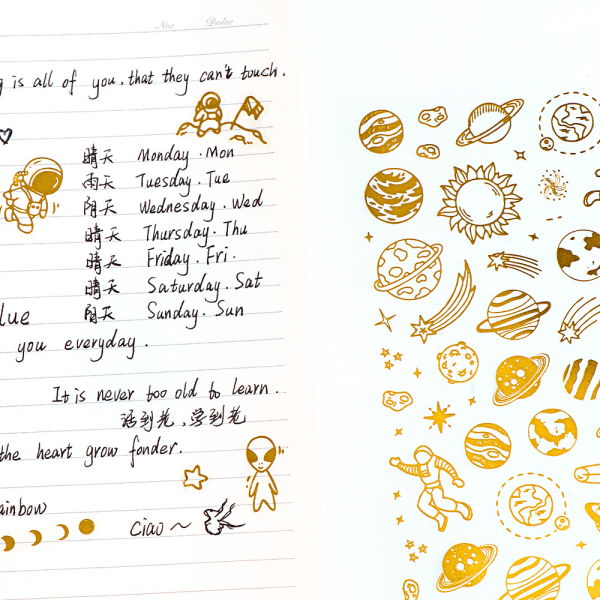 No: Date:
g is all of you, that they can't touch.
晴天 Monday. Mon
雨天 Tuesday. Tue
阴天 Wednesday. Wed
晴天 Thursday. Thu
晴天 Friday. Fri.
晴天 Saturday. Sat
阴天 Sunday. Sun
lue
you everyday.
It is never too old to learn.
活到老,学到老
the heart grow fonder.
ainbow
Ciao ~